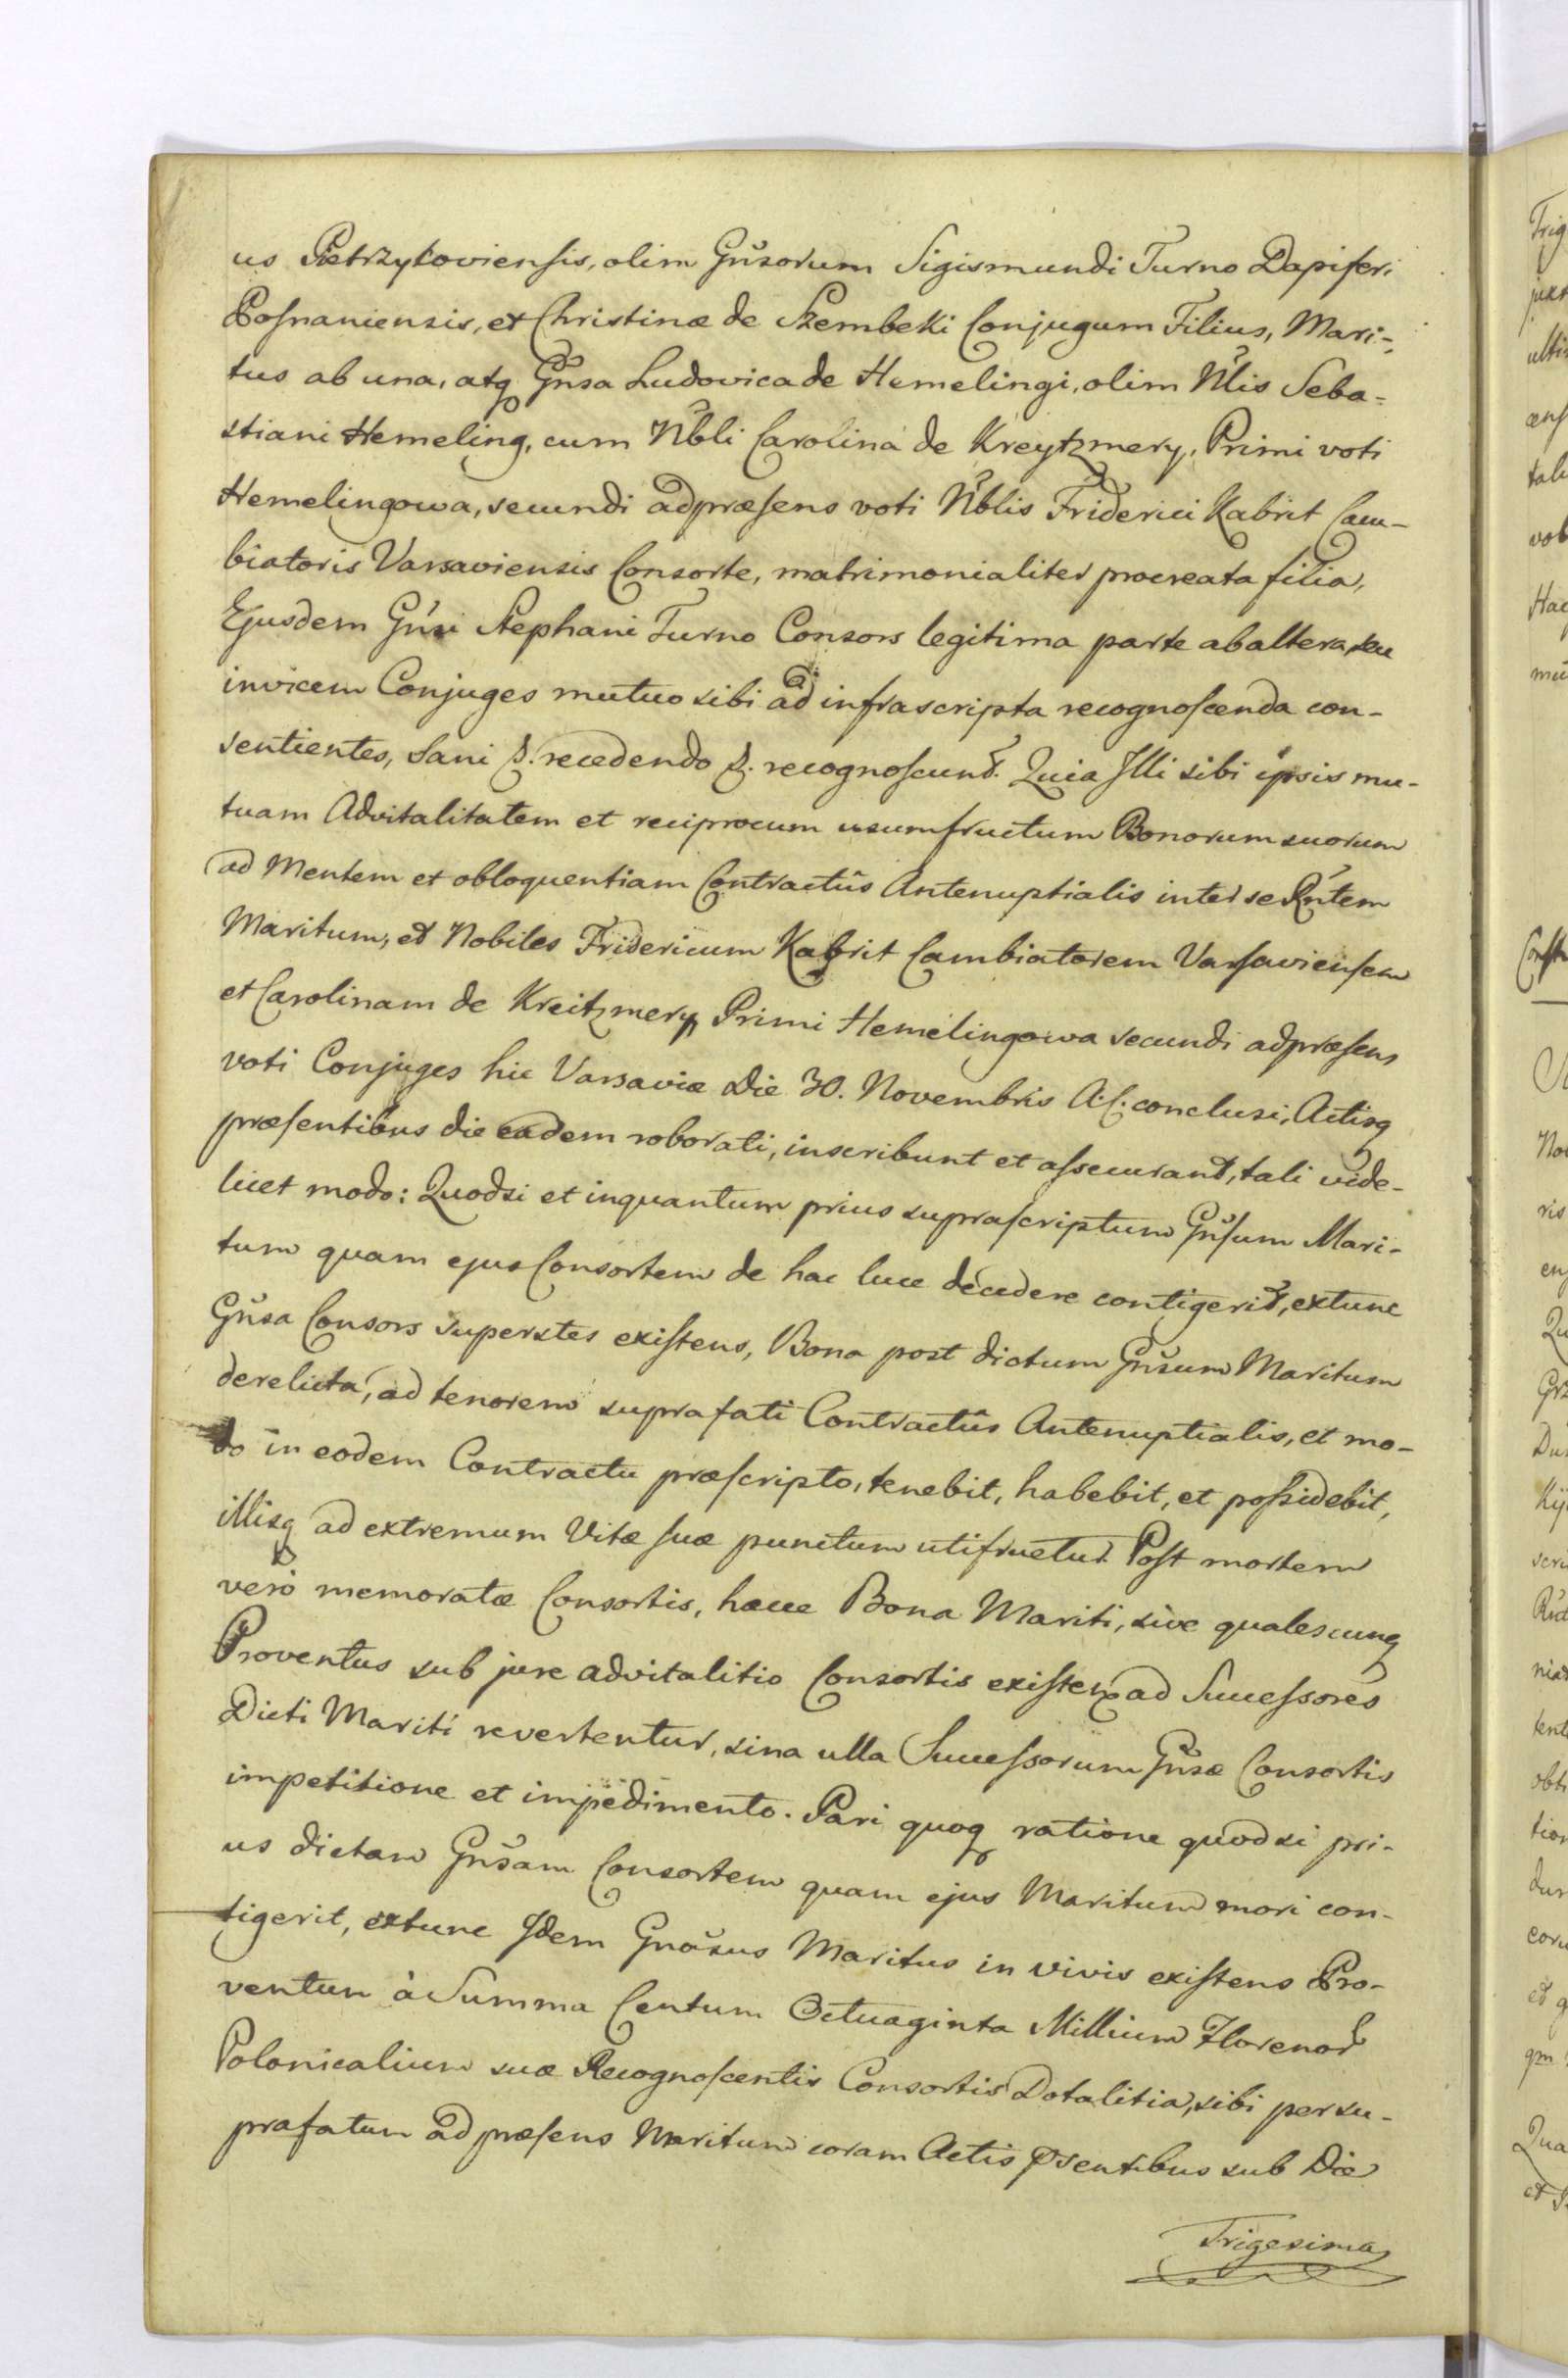 us Pietrzykoviensis, olim Gnsorum Sigismundi Turno Dapiferi
Posnaniensis, et Christinæ de Szembeki Conjugum Filius, Mari-
tus ab una, atq Gnsa Ludovica de Hemelingi, olim Nlis Seba=
stiani Hemeling, cum Nbli Carolina de Kreytzmery, Primi voti
Hemelingowa, secundi adpræsens voti Nblis Friderici Kabrit Cam-
biatoris Varsaviensis Consorte, matrimonialiter procreata filia,
Ejusdem Gnsi Stephani Turno Consors legitima parte ab altera, seu
invicem Conjuges mutuo sibi ad infrascripta recognoscenda con-
sentientes, Sani p. recedendo p. recognoscunt. Quia Illi sibi ipsis mu-
tuam Advitalitatem et reciprocum usumfructum Bonorum suorum
ad Mentem et obloquentiam Contractûs Antenuptialis inter se Rntem
Maritum, et Nobiles Fridericum Kabrit Cambiatorem Varsaviensem
et Carolinam de Kreitzmery Primi Hemelingowa secundi adpræsens
voti Conjuges hic Varsaviæ Die 30. Novembris A. C. conclusi, Actisq
præsentibus die eadem roborati, inscribunt et assecurant, tali vide-
licet modo: Quodsi et inquantum prius suprascriptum Gnsum Mari-
tum quam ejus Consortem de hac luce decedere contigerit, extunc
Gnsa Consors superstes existens, Bona post dictum Gnsum Maritum
derelicta, ad tenorem suprafati Contractûs Antenuptialis, et mo-
do in eodem Contractu præscripto, tenebit, habebit, et possidebit,
illisq ad extremum Vitæ suæ punctum utifruetur. Post mortem
verò memoratæ Consortis, hæcce Bona Mariti, sive qualescunq
Proventus sub jure advitalitio Consortis existen. ad Successores
Dicti Mariti revertentur, sina ulla Successorum Gnsæ Consortis
impetitione et impedimento. Pari quoq ratione quodsi pri-
us dictam Gnsam Consortem quam ejus Maritum mori con-
tigerit, extunc Idem Gnosus Maritus in vivis existens Pro-
ventum à Summa Centum Octuaginta Millium Florenor
Polonicalium suæ Recognoscentis Consortis Dotalitia, sibi per su-
prafatum ad præsens Maritum coram Actis psentibus sub Die
Trigesima